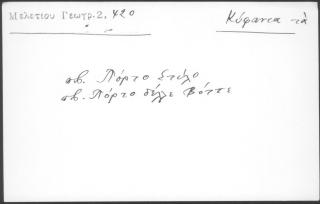 Μελετίου Γεωγρ.2, 420
Κύφαντα τὰ
νβ. Πόρτο Στύλο
νβ. Πόρτο δέλλε Βόττε